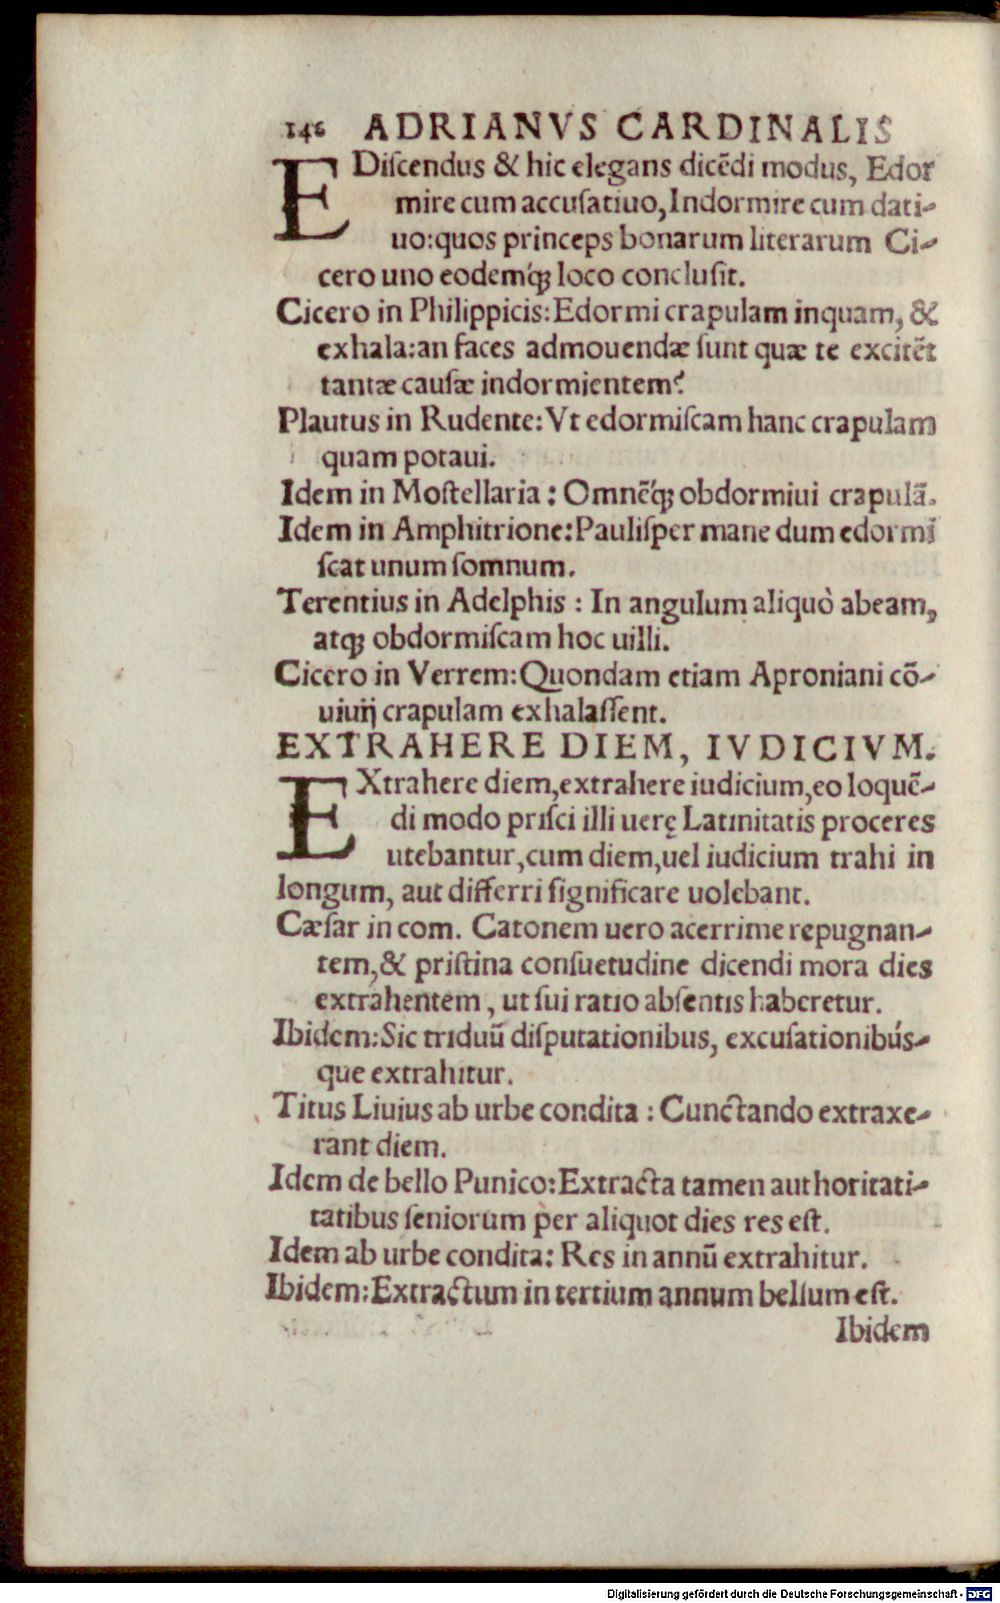 146 ADRIANVS CARDINALIS
EDiſcendus & hic elegans dicẽdi modus, Edor
mire cum accuſatiuo, Indormire cum dati-
uo: quos princeps bonarum literarum Ci-
cero uno eodemq́ꝫ loco concluſit.
Cicero in Philippicis: Edormi crapulam inquam, &
exhala: an faces admouendæ ſunt quæ te excitẽt
tantæ cauſæ indormientem?
Plautus in Rudente: Vt edormiſcam hanc crapulam
quam potaui.
Idem in Moſtellaria: Omnẽq́ꝫ obdormiui crapulã.
Idem in Amphitrione: Pauliſper mane dum edormi
ſcat unum ſomnum.
Terentius in Adelphis: In angulum aliquò abeam,
atqꝫ obdormiſcam hoc uilli.
Cicero in Verrem: Quondam etiam Aproniani cõ-
uiuij crapulam exhalaſſent.
EXTRAHERE DIEM, IVDICIVM.
EXtrahere diem, extrahere iudicium, eo loquẽ-
di modo priſci illi uerę Latinitatis proceres
utebantur, cum diem, uel iudicium trahi in
longum, aut differri ſignificare uolebant.
Cæſar in com. Catonem uero acerrime repugnan-
tem, & priſtina conſuetudine dicendi mora dies
extrahentem, ut ſui ratio abſentis haberetur.
Ibidem: Sic triduũ diſputationibus, excuſationibús-
que extrahitur.
Titus Liuius ab urbe condita: Cunctando extraxe-
rant diem.
Idem de bello Punico: Extracta tamen authoritati-
tatibus ſeniorum per aliquot dies res eſt.
Idem ab urbe condita: Res in annũ extrahitur.
Ibidem: Extractum in tertium annum bellum eſt.
Ibidem
Digitalisierung gefördert durch die Deutsche Forschungsgemeinschaft - DFG